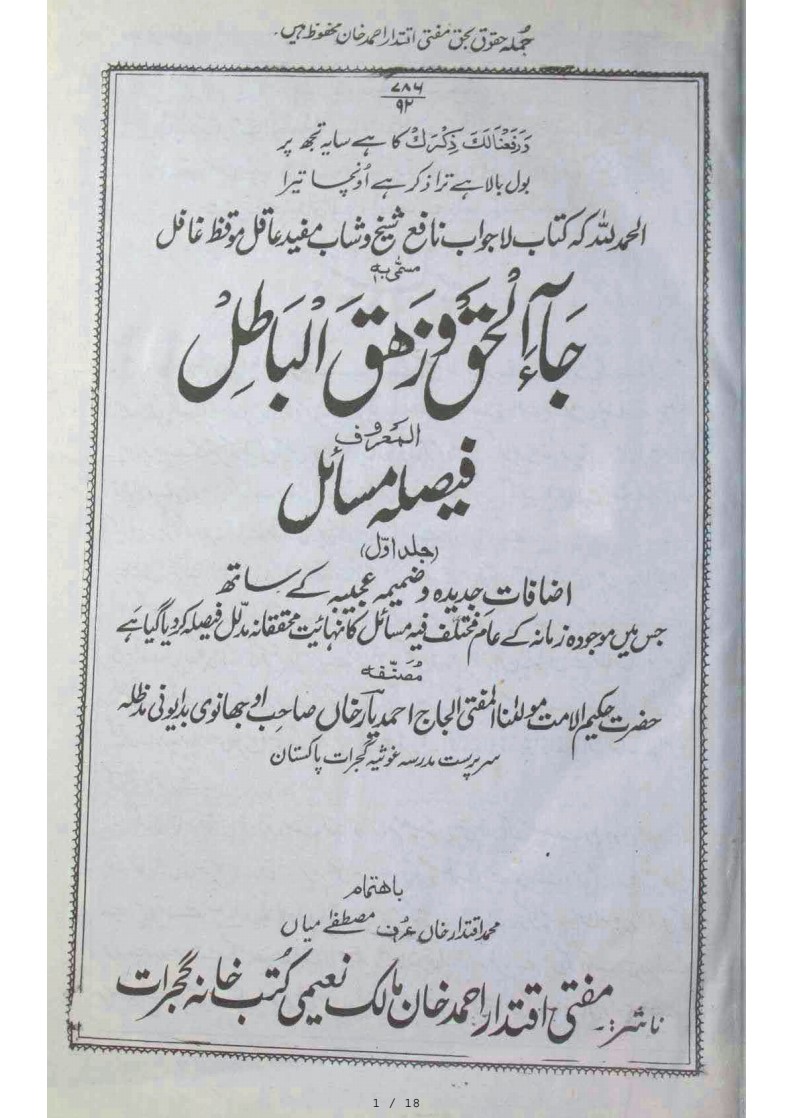 جُملہ حقوق بحق مفتی اقتدار احمد خان محفوظ ہیں۔
۷۸۶
۹۲
وَرَفَعْنَالَكَ ذِكْرَكَ کا ہے سایہ تجھ پر
بول بالا ہے ترا ذکر ہے اُونچا تیرا
الحمدللہ کہ کتاب لاجواب نافع شیخ و شاب مفید عاقل موقظ غافل
مسمّٰی بہ
جَآءَ الْحَقُّ وَزَهَقَ الْبَاطِلُ
المعروف
فیصلہ مسائل
(جلد اوّل)
اضافات جدیدہ و ضمیمہ عجیبہ کے ساتھ
جس میں موجودہ زمانہ کے عام مختلف فیہ مسائل کا نہائیت محققانہ مدلل فیصلہ کر دیا گیا ہے
مُصَنّفہ
حضرت حکیم الامت مولٰنا المفتی الحاج احمد یار خاں صاحب اوجھانوی بدایونی مدظلہ
سرپرست مدرسہ غوثیہ گجرات پاکستان
باھتمام
محمد اقتدار خاں عرف مصطفٰے میاں
ناشر:۔ مفتی اقتدار احمد خان مالک نعیمی کُتب خانہ گجرات
1 / 18